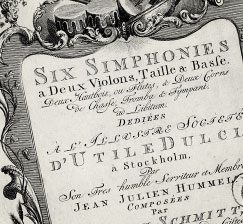 SIX SIMPHONIES
a Deux Violons, Taille & Basse.
Deux Hautbois, ou Flutes, & Deux Corns
de Chasse, Tromb: & Tympani.
ad Libitum.
DEDIÉES
A L'ILLUSTRE SOCIETÉ
D'UTILE DULCI
à Stockholm.
Par
Son Tres humble Serviteur et Membre
JEAN JULIEN HUMMEL
COMPOSÉES
Par
SCHMITT